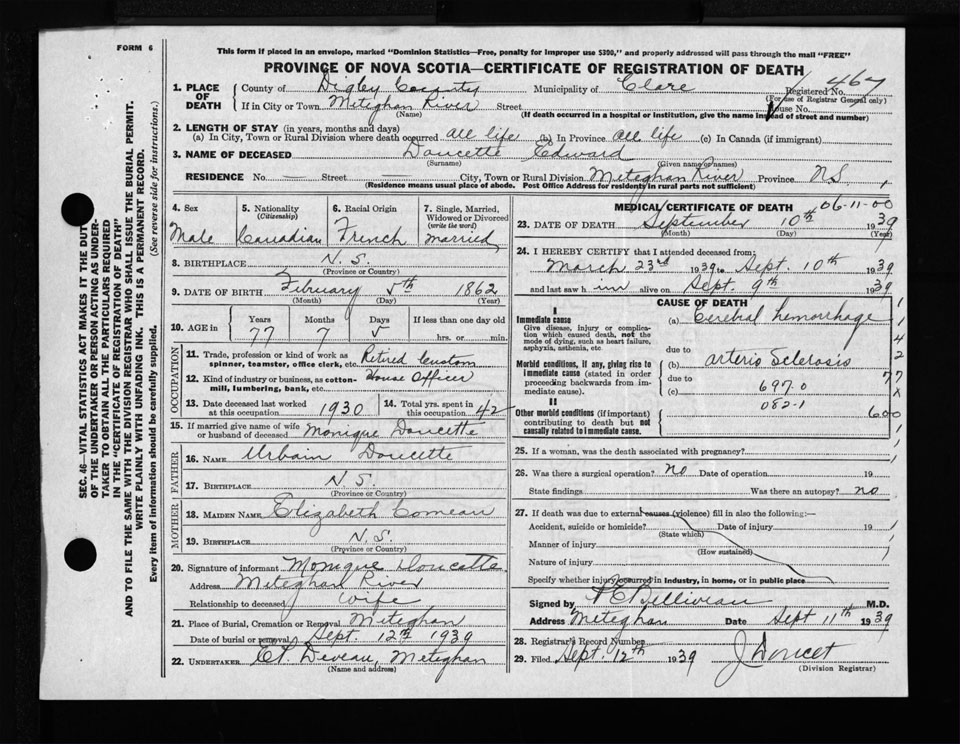 FORM 6
This form if placed in an envelope, marked "Dominion Statistics—Free, penalty for improper use $300," and properly addressed will pass through the mail "FREE"
PROVINCE OF NOVA SCOTIA—CERTIFICATE OF REGISTRATION OF DEATH
SEC. 46—VITAL STATISTICS ACT MAKES IT THE DUTY
OF THE UNDERTAKER OR PERSON ACTING AS UNDER-
TAKER TO OBTAIN ALL THE PARTICULARS REQUIRED
IN THE "CERTIFICATE OF REGISTRATION OF DEATH"
AND TO FILE THE SAME WITH THE DIVISION REGISTRAR WHO SHALL ISSUE THE BURIAL PERMIT.
WRITE PLAINLY WITH UNFADING INK. THIS IS A PERMANENT RECORD.
Every item of information should be carefully supplied. (See reverse side for instructions.)
1. PLACE OF DEATH County of Digby County Municipality of Clare Registered No. 467
(For use of Registrar General only)
If in City or Town Meteghan River Street House No.
(Name) (If death occurred in a hospital or institution, give the name instead of street and number)
2. LENGTH OF STAY (in years, months and days)
(a) In City, Town or Rural Division where death occurred all life (b) In Province all life (c) In Canada (if immigrant)
3. NAME OF DECEASED Doucette Edward
(Surname) (Given name or names)
RESIDENCE No. — Street — City, Town or Rural Division Meteghan River Province N.S.
(Residence means usual place of abode. Post Office Address for residents in rural parts not sufficient)
4. Sex 5. Nationality 6. Racial Origin 7. Single, Married,
(Citizenship) Widowed or Divorced
(write the word)
Male Canadian French married
8. BIRTHPLACE N.S.
(Province or Country)
9. DATE OF BIRTH February 5th 1862
(Month) (Day) (Year)
10. AGE in Years Months Days If less than one day old
77 7 5 hrs. or min.
OCCUPATION
11. Trade, profession or kind of work as Retired Custom
spinner, teamster, office clerk, etc.
12. Kind of industry or business, as cotton- House Officer
mill, lumbering, bank, etc.
13. Date deceased last worked at this occupation 1930 14. Total yrs. spent in this occupation 42
15. If married give name of wife or husband of deceased Monique Doucette
FATHER
16. NAME Urbain Doucette
17. BIRTHPLACE N.S.
(Province or Country)
MOTHER
18. MAIDEN NAME Elizabeth Comeau
19. BIRTHPLACE N.S.
(Province or Country)
20. Signature of informant Monique Doucette
Address Meteghan River
Relationship to deceased wife
21. Place of Burial, Cremation or Removal Meteghan
Date of burial or removal Sept. 12th 1939
22. UNDERTAKER Deveau, Meteghan
(Name and address)
MEDICAL CERTIFICATE OF DEATH 06-11-00
23. DATE OF DEATH September 10th 1939
(Month) (Day) (Year)
24. I HEREBY CERTIFY that I attended deceased from:
March 23rd 1939 to Sept. 10th 1939
and last saw him alive on Sept. 9th 1939
CAUSE OF DEATH
I
Immediate cause (a) Cerebral hemorrhage
Give disease, injury or complica-
tion which caused death, not the
mode of dying, such as heart failure,
asphyxia, asthenia, etc
due to
Morbid conditions, if any, giving rise to (b) arterio Sclerosis
immediate cause (stated in order
proceeding backwards from im-
mediate cause).
due to
(c) 697.0
082-1
II
Other morbid conditions (if important)
contributing to death but not
causally related to immediate cause.
1
1
4
2
77
X
600
25. If a woman, was the death associated with pregnancy?
26. Was there a surgical operation? no Date of operation 19
State findings Was there an autopsy? no
27. If death was due to external causes (violence) fill in also the following:—
Accident, suicide or homicide? Date of injury 19
(State which)
Manner of injury
(How sustained)
Nature of injury
Specify whether injury occurred in industry, in home, or in public place
Signed by Belliveau M.D.
Address Meteghan Date Sept 11th 1939
28. Registrar's Record Number
29. Filed Sept. 12th 1939 J Doucet
(Division Registrar)